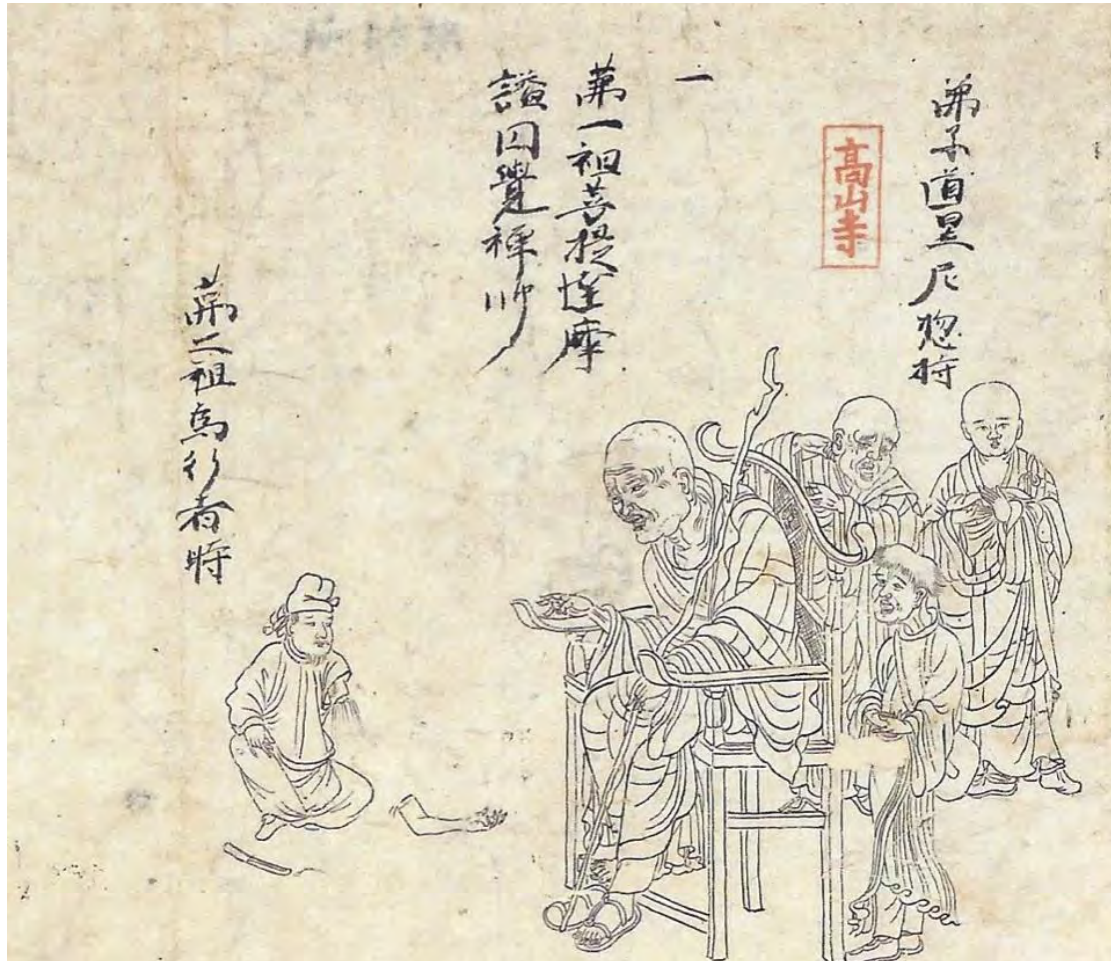 弟子道昱尼惣持
高山寺
一
第一祖菩提達摩
謚円覺禪師
第二祖為行者時